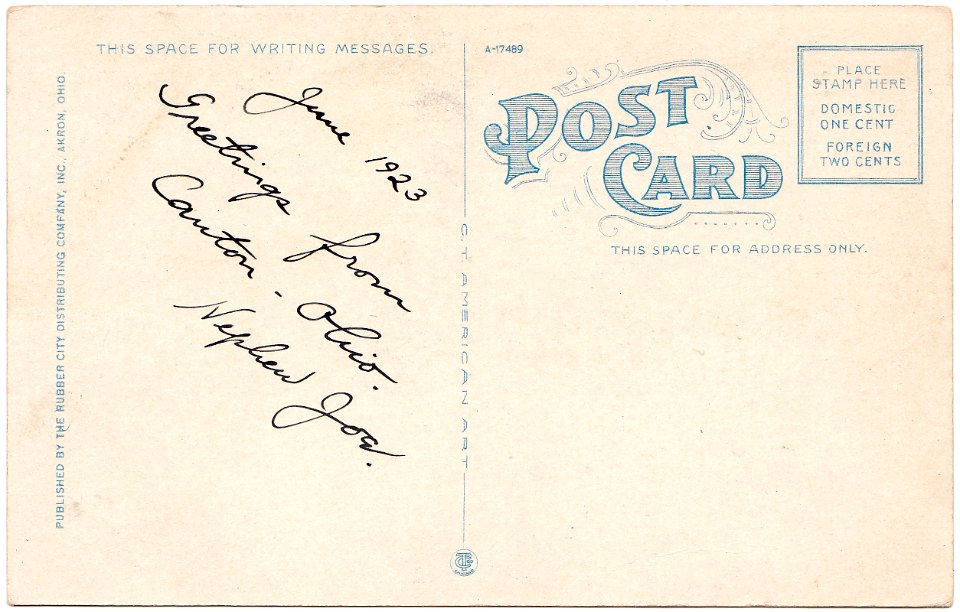 THIS SPACE FOR WRITING MESSAGES.
PUBLISHED BY THE RUBBER CITY DISTRIBUTING COMPANY, INC., AKRON, OHIO.
June 1923
Greetings from
Canton. Ohio.
Nephew Joe.
C.T. AMERICAN ART
A-17489
POST
CARD
PLACE
STAMP HERE
DOMESTIC
ONE CENT
FOREIGN
TWO CENTS
THIS SPACE FOR ADDRESS ONLY.